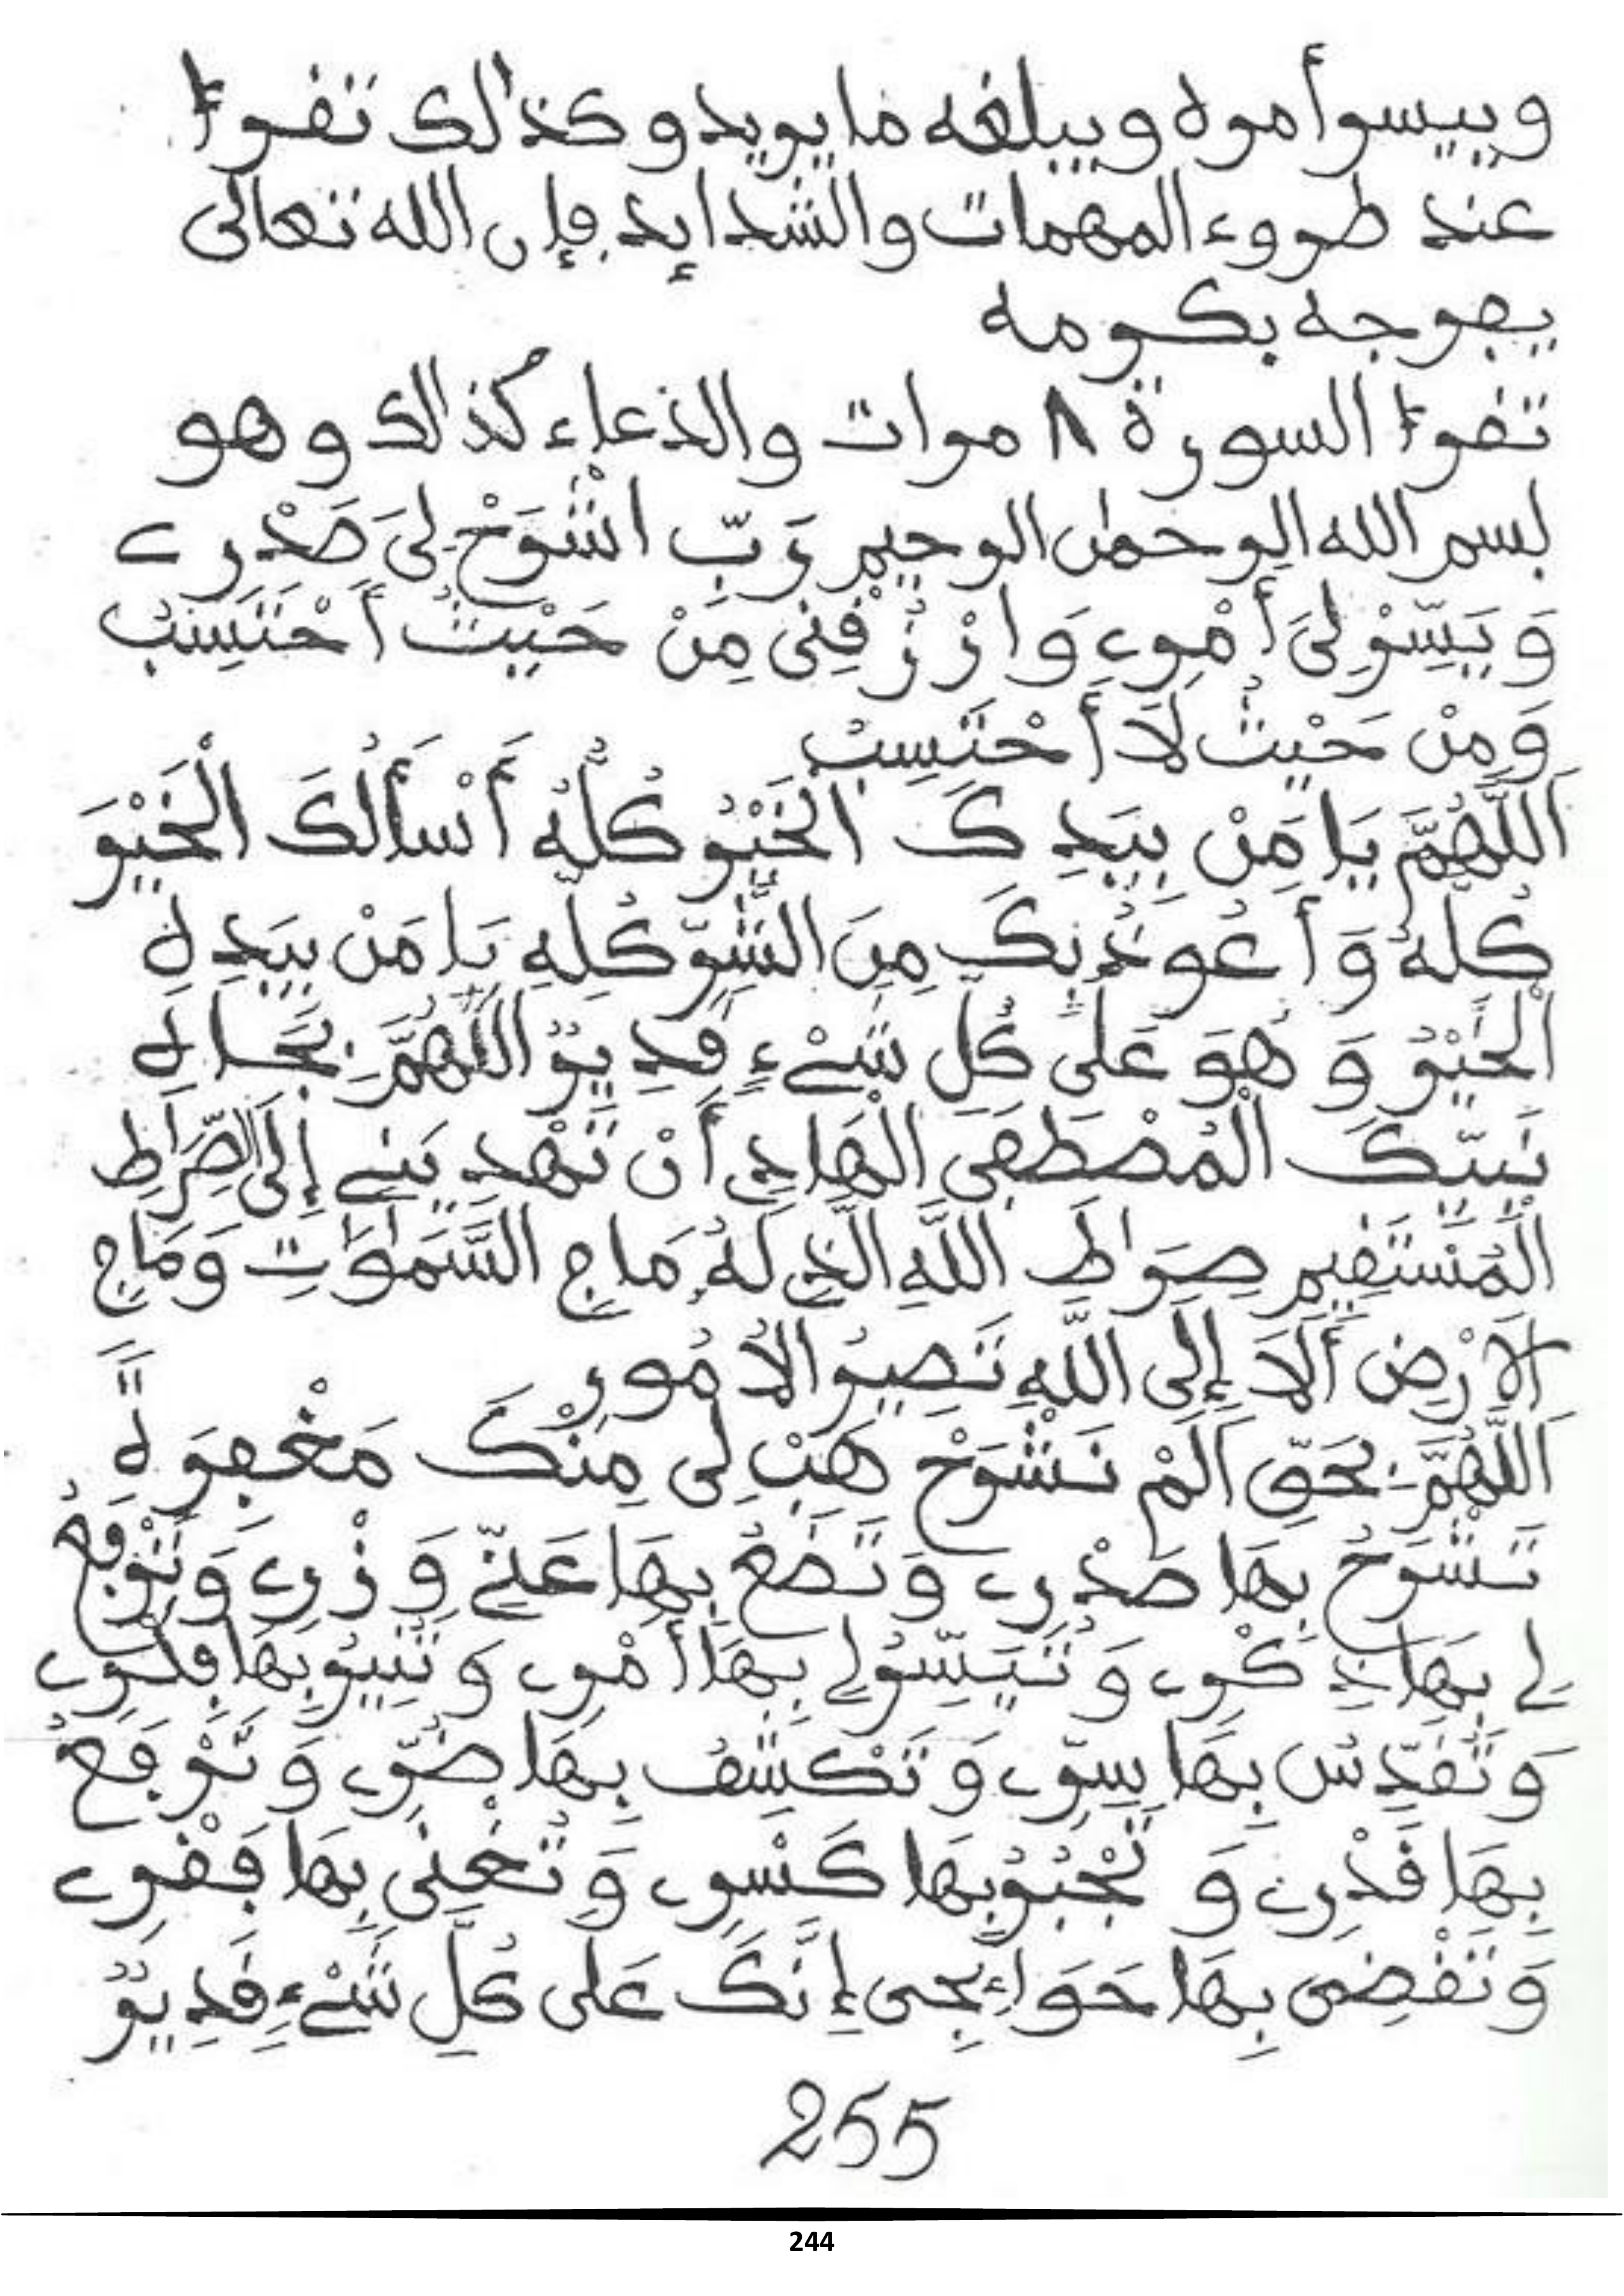 وييسر أمره ويبلغه ما يريد وكذالك تقرء
عند طروء المهمات والشدايد فإن الله تعالى
يفرجه بكرمه
تقرء السورة ٨ مرات والدعاء كذالك وهو
بسم الله الرحمن الرحيم رَبِّ اشْرَحْ لِىَ صَدْرِے
وَيَسِّرْ لِىَ أَمْرِے وَارْزُقْنِى مِنْ حَيْثُ أَحْتَسِبُ
وَمِنْ حَيْثُ لَا أَحْتَسِبُ
اَللَّهُمَّ يَا مَنْ بِيَدِكَ الْخَيْرُ كُلُّهُ أَسْأَلُكَ الْخَيْرَ
كُلَّهُ وَأَعُوذُ بِكَ مِنَ الشَّرِّ كُلِّهِ يَا مَنْ بِيَدِهِ
الْخَيْرُ وَهُوَ عَلَى كُلِّ شَےْءٍ قَدِيرٌ اللَّهُمَّ بِجَاهِ
نَبِيِّكَ الْمُصْطَفَى الْهَادِے أَنْ تَهْدِيَنِے إِلَى الصِّرَاطِ
الْمُسْتَقِيمِ صِرَاطِ اللَّهِ الَّذِے لَهُ مَا فِے السَّمَوَاتِ وَمَا فِے
الْأَرْضِ أَلَا إِلَى اللَّهِ تَصِيرُ الْأُمُورُ
اَللَّهُمَّ بِحَقِّ أَلَمْ نَشْرَحْ هَبْ لِى مِنْكَ مَغْفِرَةً
تَشْرَحُ بِهَا صَدْرِے وَتَضَعُ بِهَا عَنِّے وِزْرِے وَتَرْفَعُ
لِے بِهَا ذِكْرِے وَتُيَسِّرُ لِے بِهَا أَمْرِے وَتُنِيرُ بِهَا فِكْرِے
وَتُقَدِّسُ بِهَا سِرِّے وَتَكْشِفُ بِهَا ضُرِّے وَتَرْفَعُ
بِهَا قَدْرِے وَتَجْبُرُ بِهَا كَسْرِے وَتُغْنِى بِهَا فَقْرِے
وَتَقْضِى بِهَا حَوَائِجِى إِنَّكَ عَلَى كُلِّ شَےْءٍ قَدِيرٌ
255
244